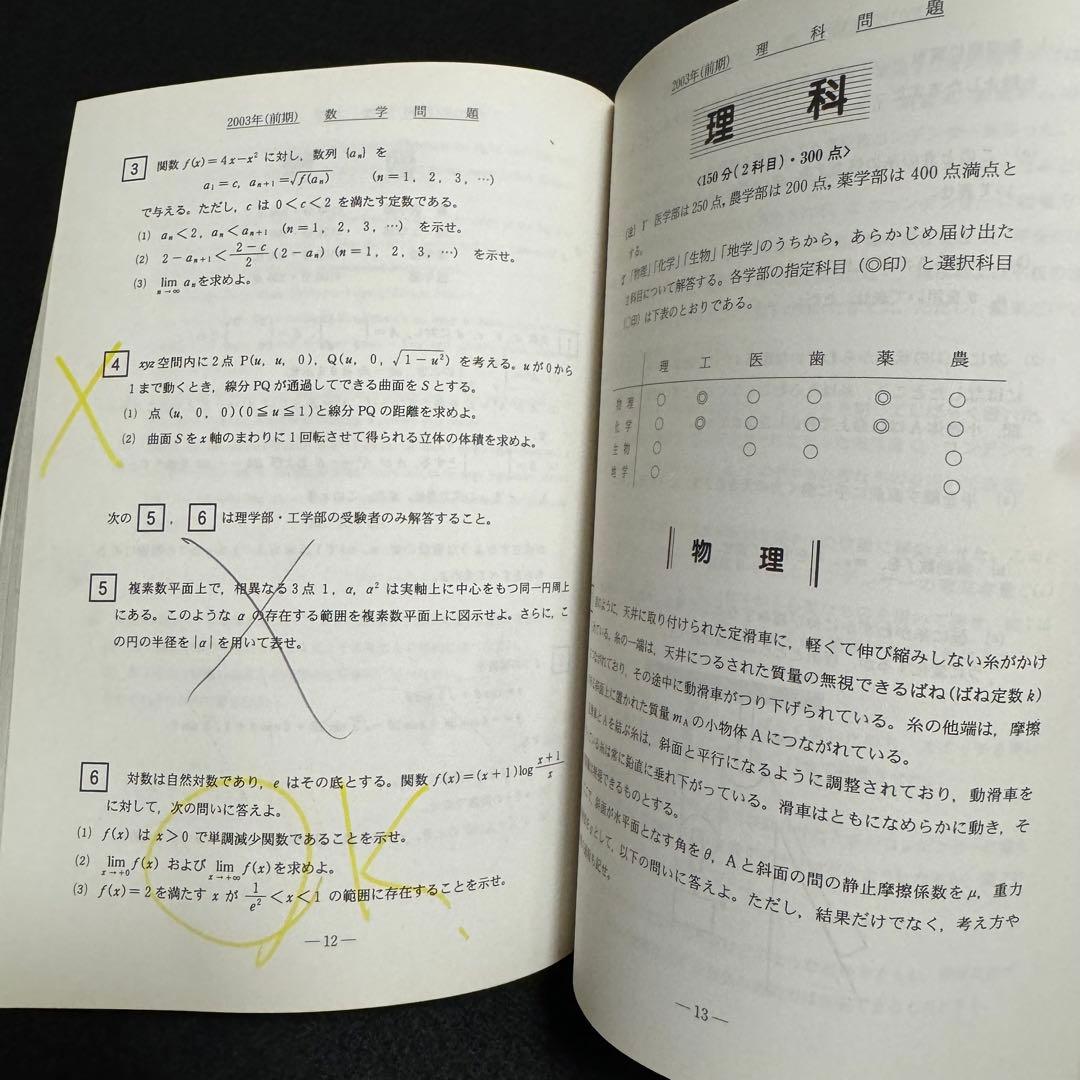 2003年(前期) 数学問題
3 関数 f(x)=4x-x² に対し，数列 {aₙ} を
a₁=c, aₙ₊₁=√f(aₙ) (n=1, 2, 3, …)
で与える。ただし，c は 0<c<2 を満たす定数である。
(1) aₙ<2, aₙ<aₙ₊₁ (n=1, 2, 3, …) を示せ。
(2) 2-aₙ₊₁<(2-c)/2 (2-aₙ) (n=1, 2, 3, …) を示せ。
(3) lim n→∞ aₙを求めよ。
4 xyz空間内に2点 P(u, u, 0), Q(u, 0, √1-u²) を考える。uが0から
1まで動くとき，線分PQが通過してできる曲面をSとする。
(1) 点 (u, 0, 0)(0≦u≦1)と線分PQの距離を求めよ。
(2) 曲面Sをx軸のまわりに1回転させて得られる立体の体積を求めよ。
次の 5 , 6 は理学部・工学部の受験者のみ解答すること。
5 複素数平面上で，相異なる3点 1, α, α² は実軸上に中心をもつ同一円周上
にある。このような α の存在する範囲を複素数平面上に図示せよ。さらに，こ
の円の半径を |α| を用いて表せ。
6 対数は自然対数であり，e はその底とする。関数 f(x)=(x+1)log (x+1)/x
に対して，次の問いに答えよ。
(1) f(x) は x>0 で単調減少関数であることを示せ。
(2) lim x→+0 f(x) および lim x→+∞ f(x)を求めよ。
(3) f(x)=2を満たす x が 1/e² <x<1 の範囲に存在することを示せ。
OK
—12—
2003年(前期) 理科問題
理科
〈150分(2科目)・300点〉
(注) 1° 医学部は250点，農学部は200点，薬学部は400点満点と
する。
2° 「物理」「化学」「生物」「地学」のうちから，あらかじめ届け出た
2科目について解答する。各学部の指定科目(◎印)と選択科目
(○印)は下表のとおりである。
理 工 医 歯 薬 農
物理 ○ ◎ ○ ○ ◎ ○
化学 ○ ◎ ○ ○ ◎ ○
生物 ○ ○ ○ ○
地学 ○ ○
物理
ように，天井に取り付けられた定滑車に，軽くて伸び縮みしない糸がかけ
れている。糸の一端は，天井につるされた質量の無視できるばね(ばね定数k)
つながれており，その途中に動滑車がつり下げられている。糸の他端は，摩擦
斜面上に置かれた質量 m_A の小物体Aにつながれている。
とAを結ぶ糸は，斜面と平行になるように調整されており，動滑車を
いる糸は常に鉛直に垂れ下がっている。滑車はともになめらかに動き，そ
は無視できるものとする。
斜面が水平面となす角をθ，Aと斜面の間の静止摩擦係数をμ，重力
として，以下の問いに答えよ。ただし，結果だけでなく，考え方や
も記せ。
—13—